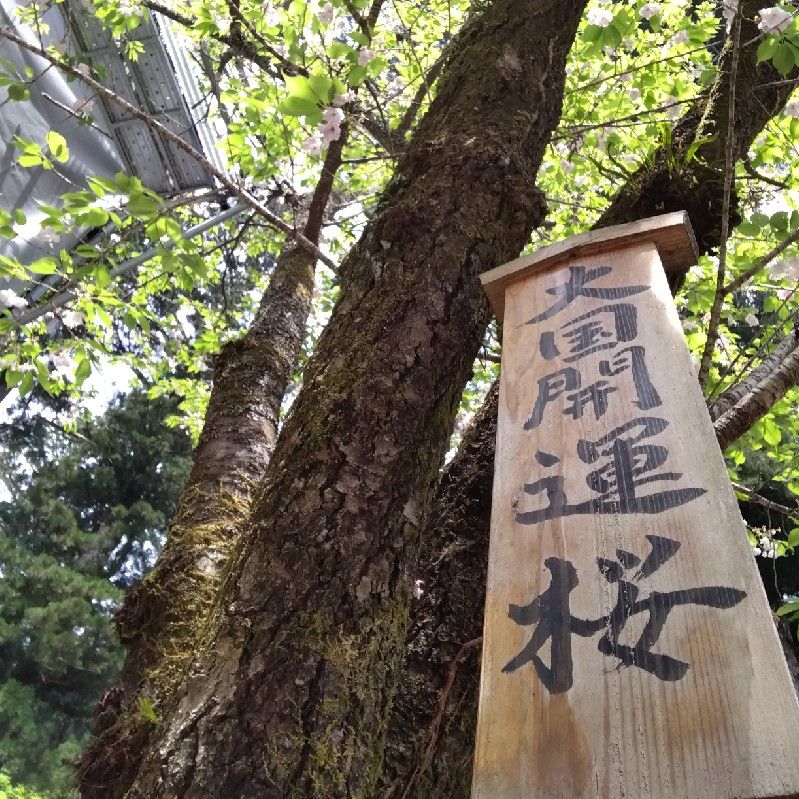 大国開運桜